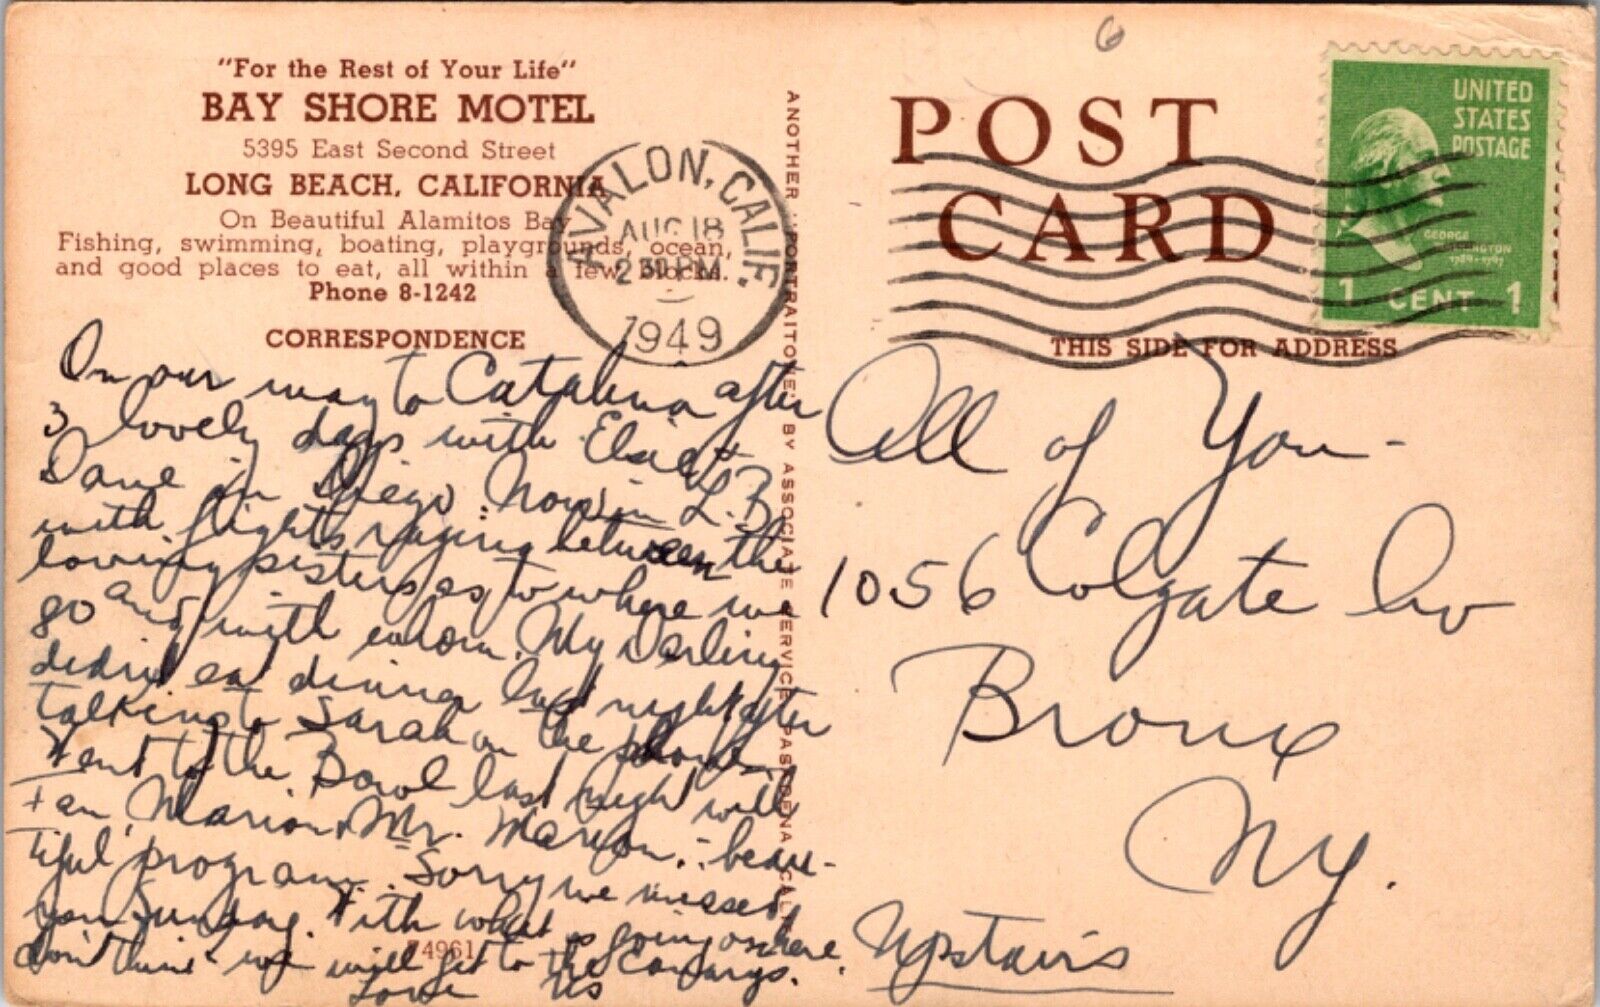 "For the Rest of Your Life"
BAY SHORE MOTEL
5395 East Second Street
LONG BEACH, CALIFORNIA
On Beautiful Alamitos Bay
Fishing, swimming, boating, playgrounds, ocean,
and good places to eat, all within a few blocks.
Phone 8-1242
CORRESPONDENCE
On our way to Catalina after
3 lovely days with Elsie +
Dave in Diego. Now in L.B.
with fights raging between the
loving sisters as to where we
go and with whom. My Darling
didn't eat dinner last night after
talking to Sarah on the phone.
Went to the Bowl last night with
Fan, Marion + Mr. Marion. - beau-
tiful program. Sorry we missed
you Sunday. With what is going on here
don't think we will get to the Canarys.
Love Us
74961
ANOTHER "PORTRAITONE" BY ASSOCIATE SERVICE, PASADENA, CALIF.
AVALON, CALIF.
AUG 18
2 30 PM
1949
6
POST
CARD
THIS SIDE FOR ADDRESS
UNITED
STATES
POSTAGE
GEORGE
WASHINGTON
1789-1797
1 CENT 1
All of You -
1056 Colgate Av
Bronx
NY.
Upstairs